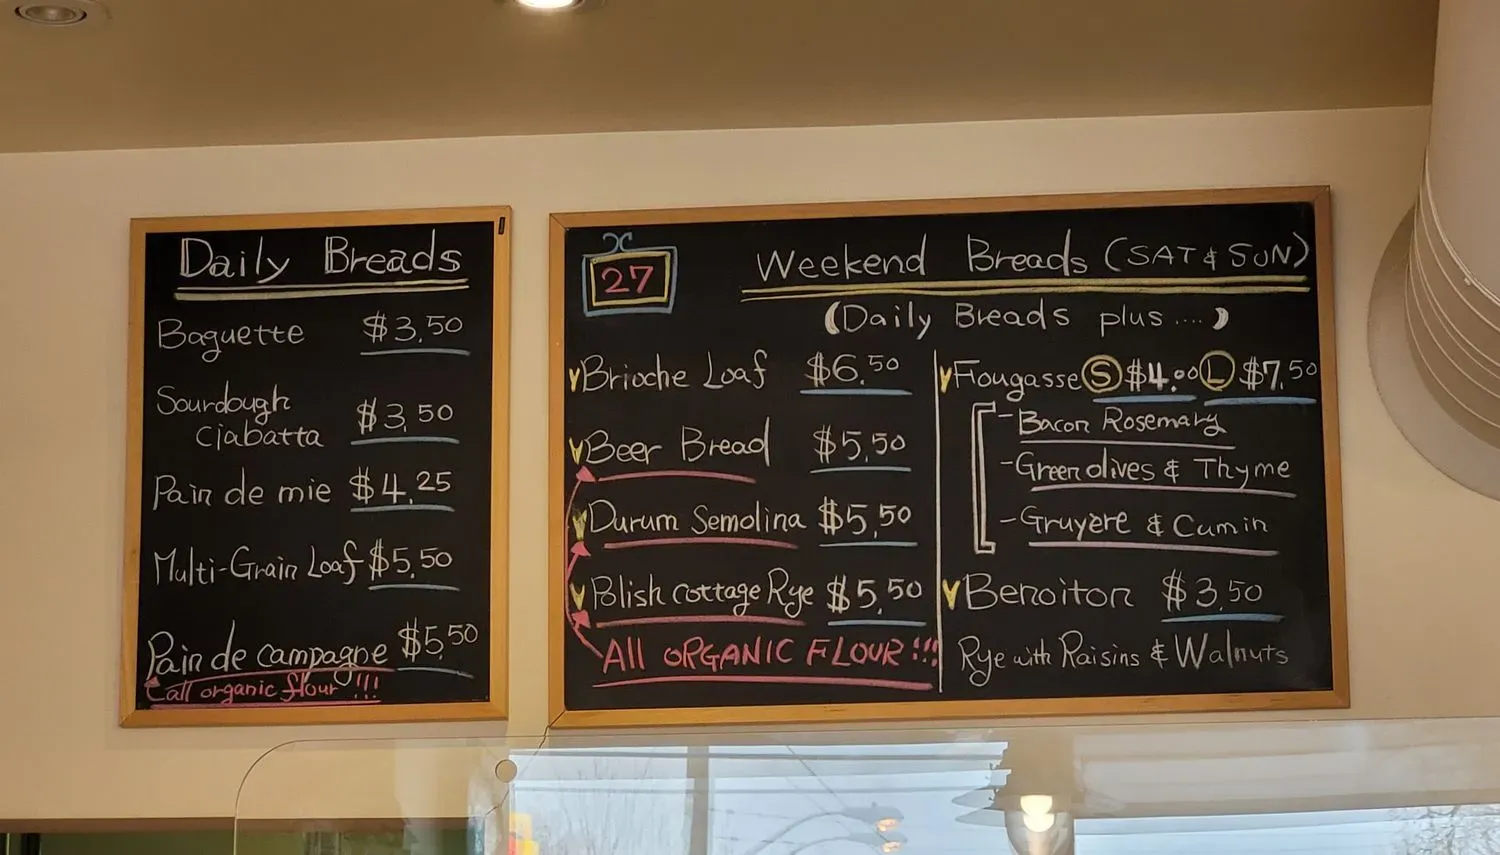 Daily Breads
Baguette $3.50
Sourdough
Ciabatta $3.50
Pain de mie $4.25
Multi-Grain Loaf $5.50
Pain de campagne $5.50
all organic flour !!!
27
Weekend Breads (SAT & SUN)
(Daily Breads plus ....)
Brioche Loaf $6.50
Beer Bread $5.50
Durum Semolina $5.50
Polish cottage Rye $5.50
All ORGANIC FLOUR!!!
Fougasse S $4.00 L $7.50
- Bacon Rosemary
- Green olives & Thyme
- Gruyère & Cumin
Benoiton $3.50
Rye with Raisins & Walnuts